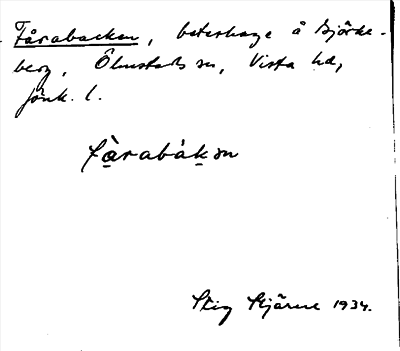 Fårabacken, beteshage å Björke-
berg, Ölmstads sn, Vista hd,
Jönk. l.
fàrabákən
Stig Stjärne 1934.